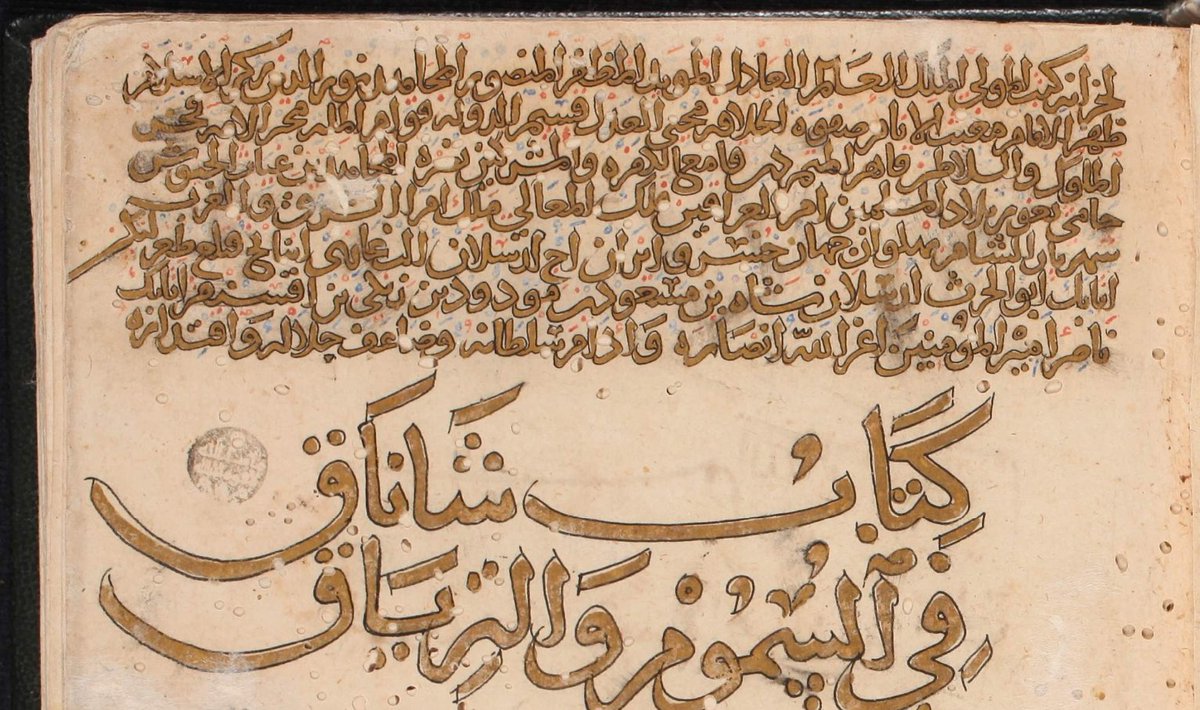 لخزانة كتب المولى الملك العالم العادل المويد المظفر المنصور المجاهد نور الدين ركن الاسلام
ظهير الانام مغيث الانام صفوة الخلافة محيي العدل قسيم الدولة قوام الملة مجير الامة محيي
الملوك والسلاطين قاهر المتمردين قامع الكفرة والمشركين نصرة المجاهدين عماد الجيوش
حامي ثغور بلاد المسلمين امير العراقين فلك المعالي ملك امرا الشرق والغرب
شهريار الشام بهلوان جهان خسرو ايران الب ارسلان اينانج قلغ طغرلتكين
اتابك ابو الحرث ارسلان شاه بن مسعود بن مودود بن زنكي بن اقسنقر اتابك
ناصر امير المومنين اعز الله انصاره وادام سلطانه وضاعف جلاله واقتداره
كِتَابُ شَانَاق
فِي السُّمُومِ وَالتِّرْيَاق